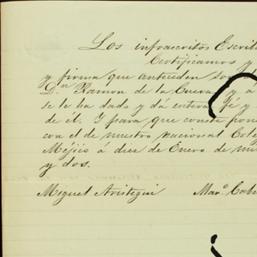 Los infrascritos Escrib
Certificamos y
y firma que anteceden son
Dn. Ramon de la Cueva y á
se le ha dado y dá entera fé y
de él. Y para que conste pon
con el de nuestro nacional Cole
Mejico á diez de Enero de mi
y dos.
Miguel Aristegui Mar.º